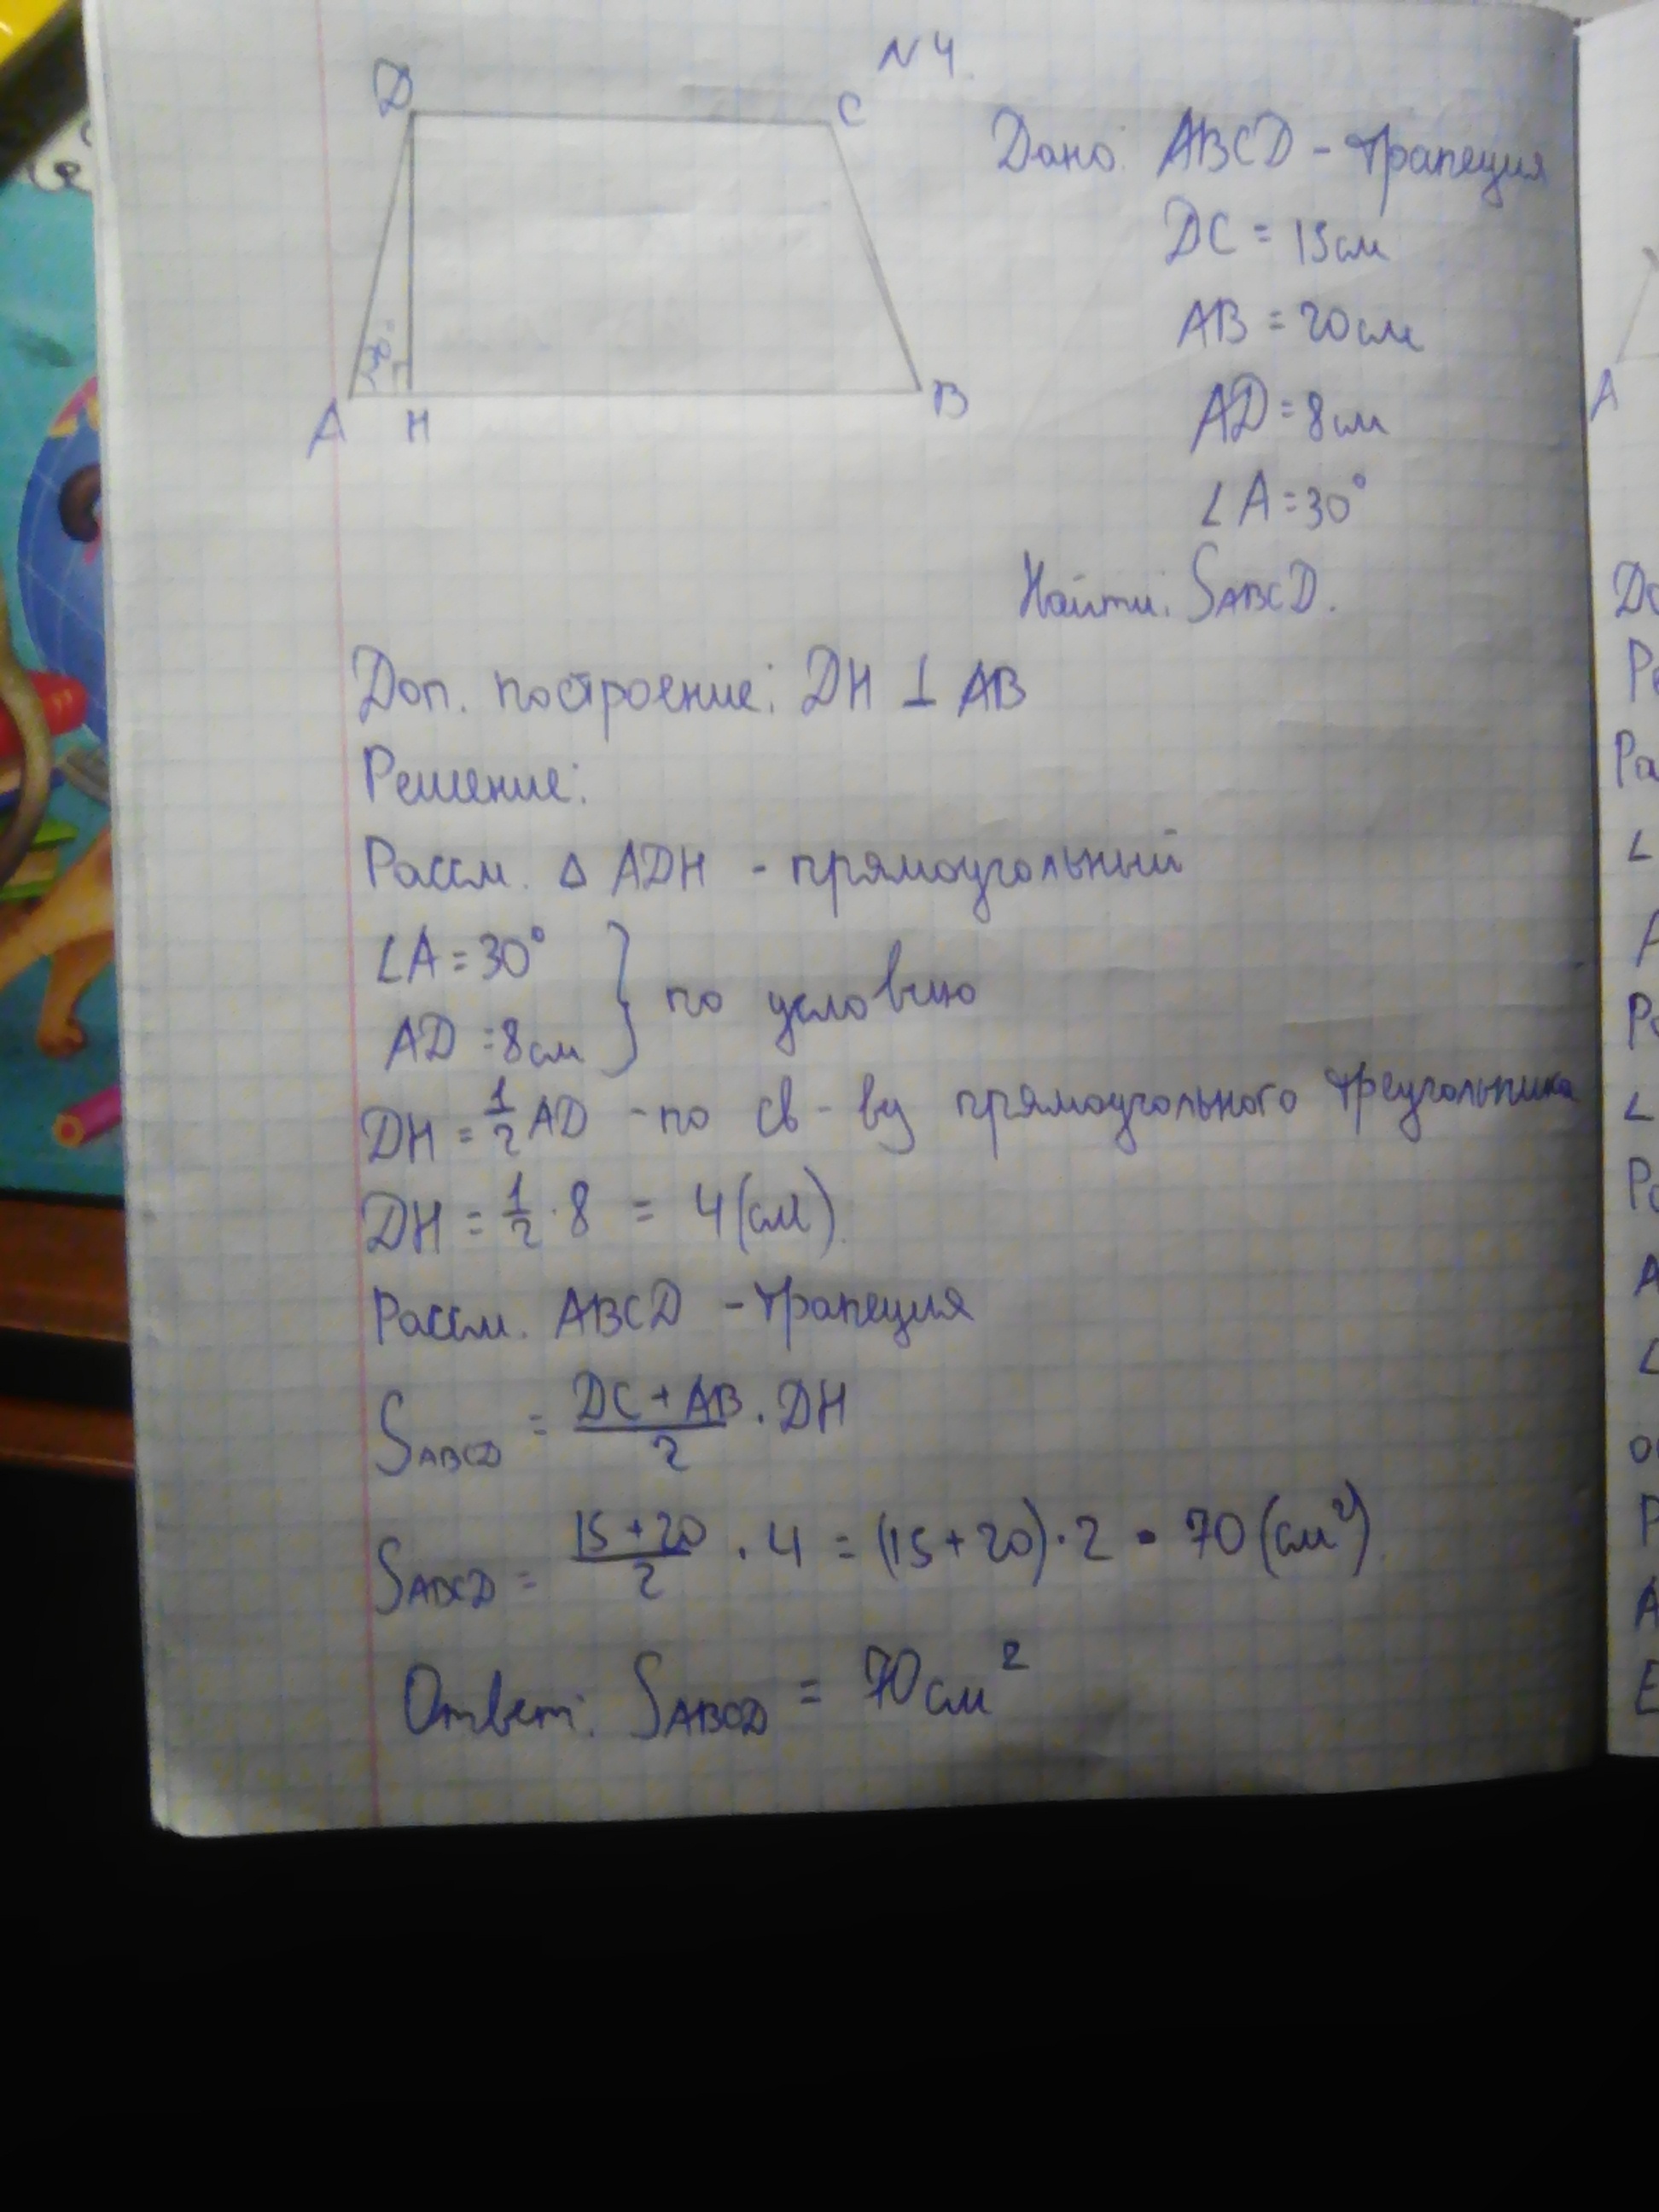 N 4.
D
C
30°
A
H
B
Дано: ABCD - трапеция
DC = 15см
AB = 20см
AD = 8см
∠A = 30°
Найти: SABCD.
Доп. построение: DH ⊥ AB
Решение:
Рассм. Δ ADH - прямоугольный
∠A = 30°
AD = 8см } по условию
DH = 1/2 AD - по св-ву прямоугольного треугольника
DH = 1/2 · 8 = 4 (см).
Рассм. ABCD - трапеция
SABCD = DC + AB / 2 · DH
SABCD = 15 + 20 / 2 · 4 = (15 + 20) · 2 = 70 (см²).
Ответ: SABCD = 70 см²
A
До
Ре
Ра
∠
A
Ра
∠
Ра
A
∠
P
A
E